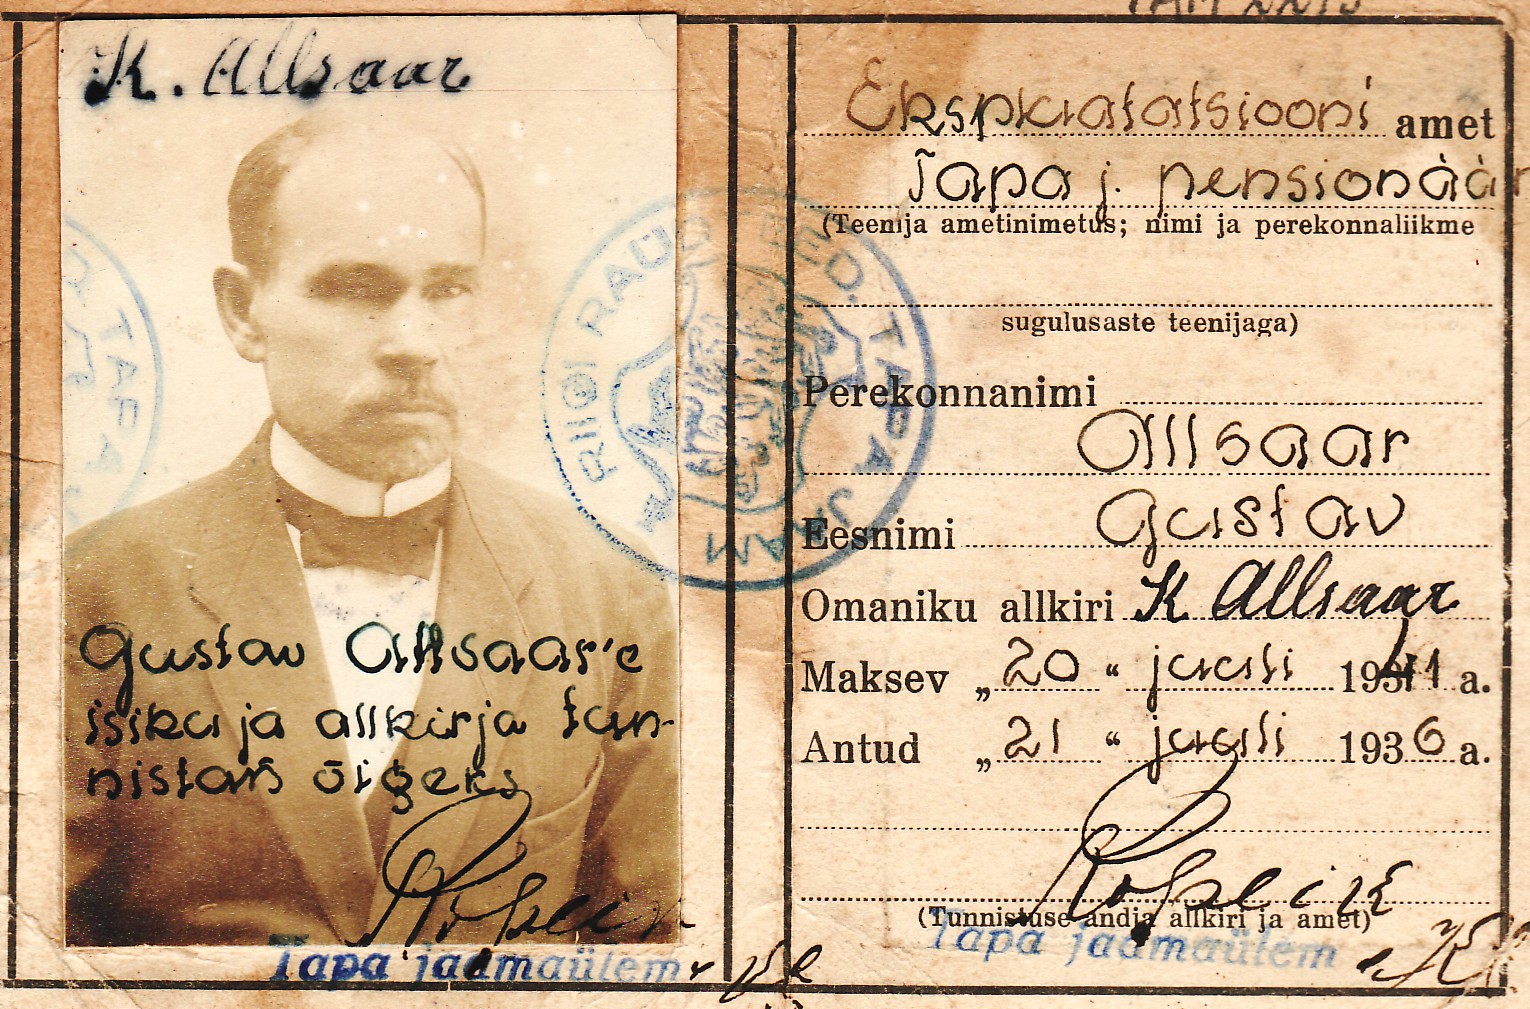 K. Allsaar
Gustav Allsaar'e
isiku ja allkirja tun-
nistan õigeks
Tapa jaamaülem
RIIGI RAUD ED. TAPA JAAM
TAPA
Ekspluatatsiooni amet
Tapa j. pensionäär
(Teenija ametinimetus; nimi ja perekonnaliikme
sugulusaste teenijaga)
Perekonnanimi
Allsaar
Eesnimi Gustav
Omaniku allkiri K Allsaar
Maksev „20“ juuli 1941 a.
Antud „21“ juuli 1936 a.
(Tunnistuse andja allkiri ja amet)
Tapa jaamaülem